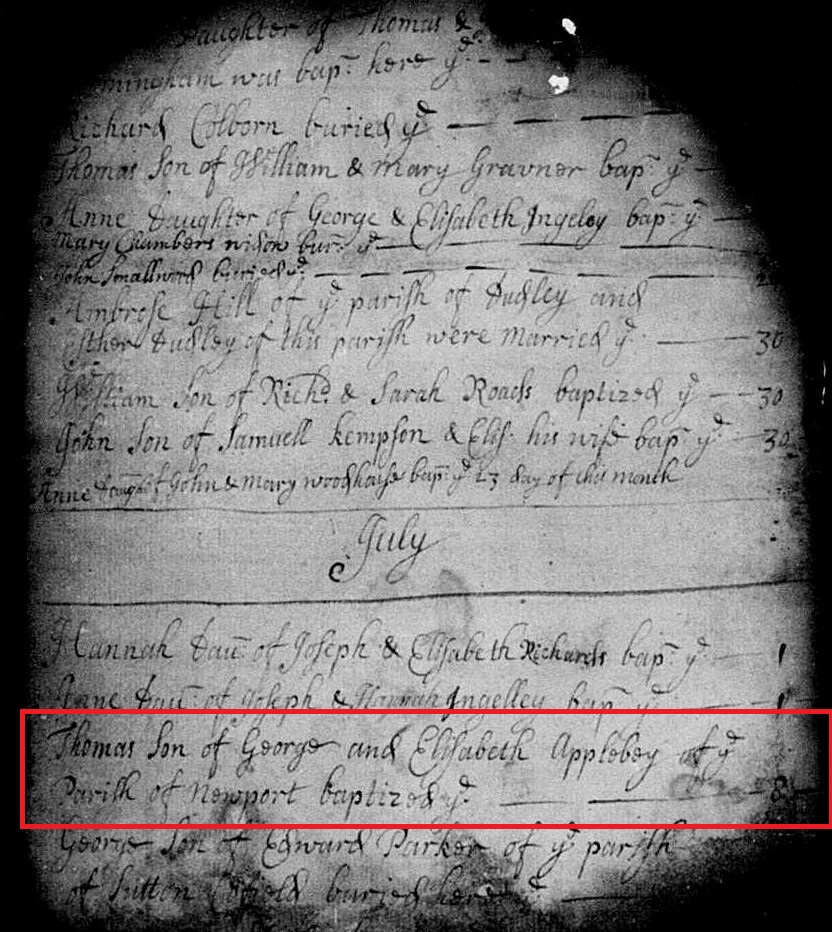 Daughter of Thomas &
mingham was bap: here yͤ
Richard Colborn buried yͤ
Thomas Son of William & Mary Gravner bap: yͤ
Anne Daughter of George & Elisabeth Ingeley bap: yͤ
Mary Chambers widow bur: yͤ
John Smallword buried yͤ
Ambrose Hill of yͤ parish of Dudley and
Esther Dudley of this parish were Married yͤ 30
William Son of Richᵈ & Sarah Roads baptized yͤ 30
John Son of Samuell Kempson & Elis: his wife bap: yͤ 30
Anne Daughᵗ of John & Mary Woodhouse bap: yͤ 23 day of this month
July
Hannah Dau: of Joseph & Elisabeth Richards bap: yͤ 1
Anne Dau: of Joseph & Hannah Ingelley bap: yͤ 1
Thomas Son of George and Elisabeth Applebey of yͤ
Parish of Newport baptized yͤ 8
George Son of Edward Parker of yͤ parish
of Sutton Cofield buried here yͤ